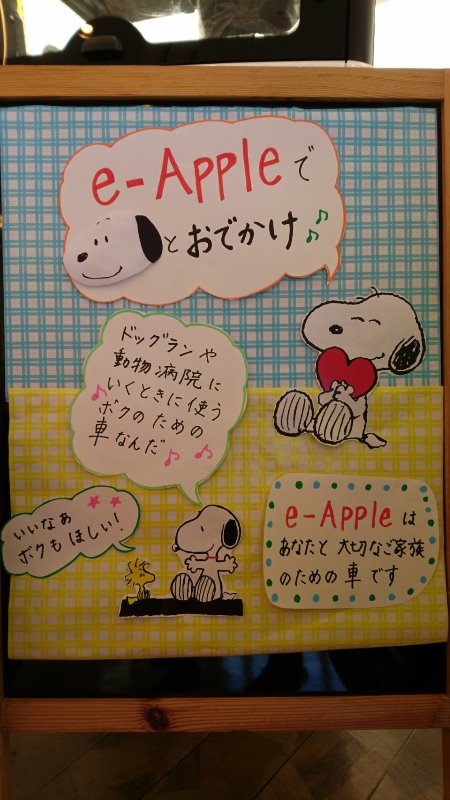 e-Appleで
とおでかけ
ドッグランや
動物病院に
いくときに使う
ボクのための
車なんだ
いいなぁ
ボクもほしい!
e-Appleは
あなたと大切なご家族
のための車です